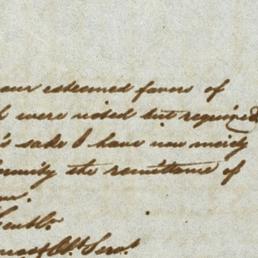 our esteemed favors of
were noted but required
's sake I have now merely
the remittance of
Gentn.
Obt. Servt.